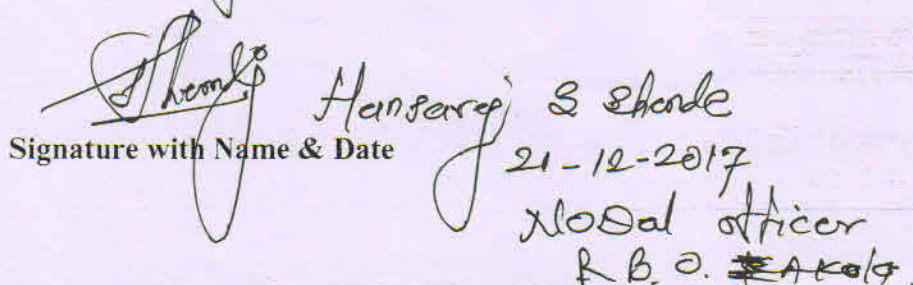 Hansaraj S Shende
Signature with Name & Date
21-12-2017
Nodal officer
R B. O. Akola